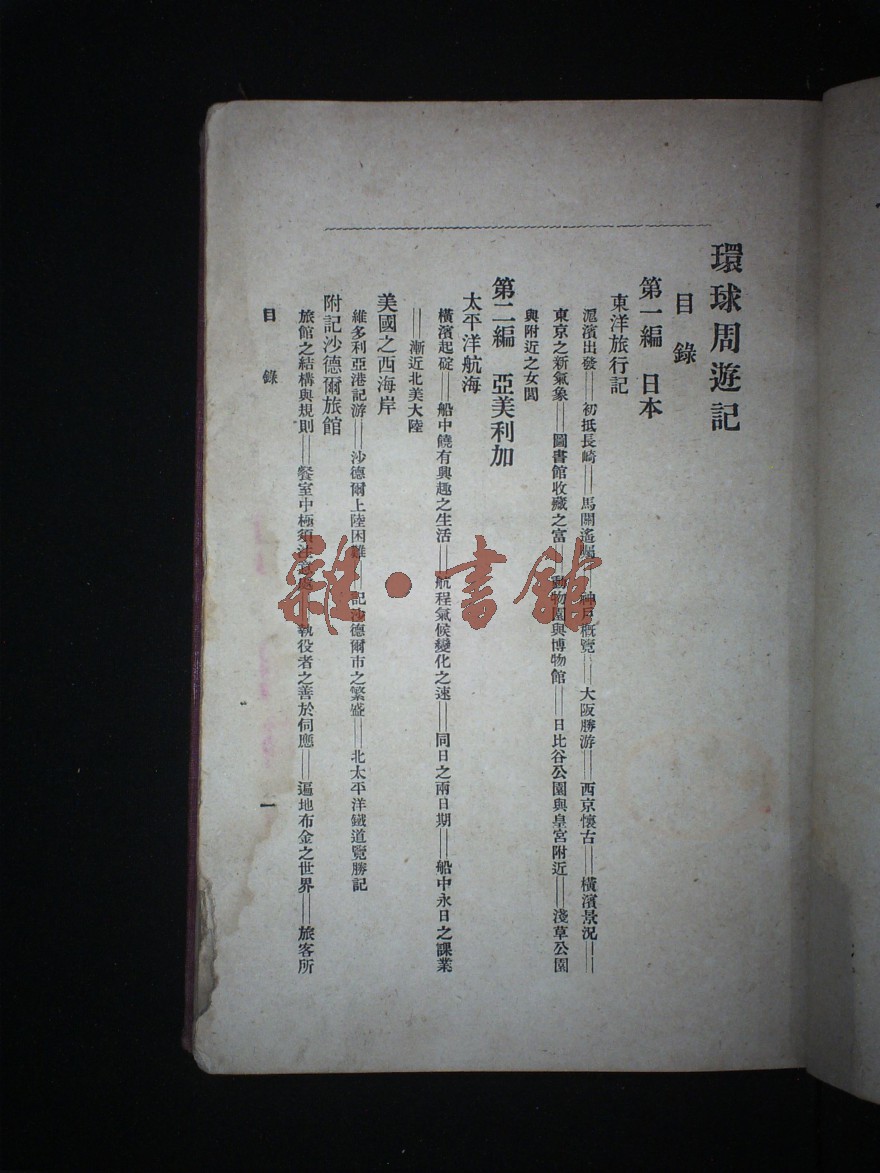 環球周遊記
目錄
第一編 日本
東洋旅行記
滬濱出發——初抵長崎——馬關遙矚——神戶概覽——大阪勝游——西京懷古——橫濱景況——
東京之新氣象——圖書館收藏之富——動物園與博物館——日比谷公園與皇宮附近——淺草公園
與附近之女閭
第二編 亞美利加
太平洋航海
橫濱起碇——船中饒有興趣之生活——航程氣候變化之速——同日之兩日期——船中永日之課業
——漸近北美大陸
美國之西海岸
維多利亞港記游——沙德爾上陸困難——記沙德爾市之繁盛——北太平洋鐵道覽勝記
附記沙德爾旅館
旅館之結構與規則——餐室中極須注意——執役者之善於伺應——遍地布金之世界——旅客所
目錄 一
雜·書館